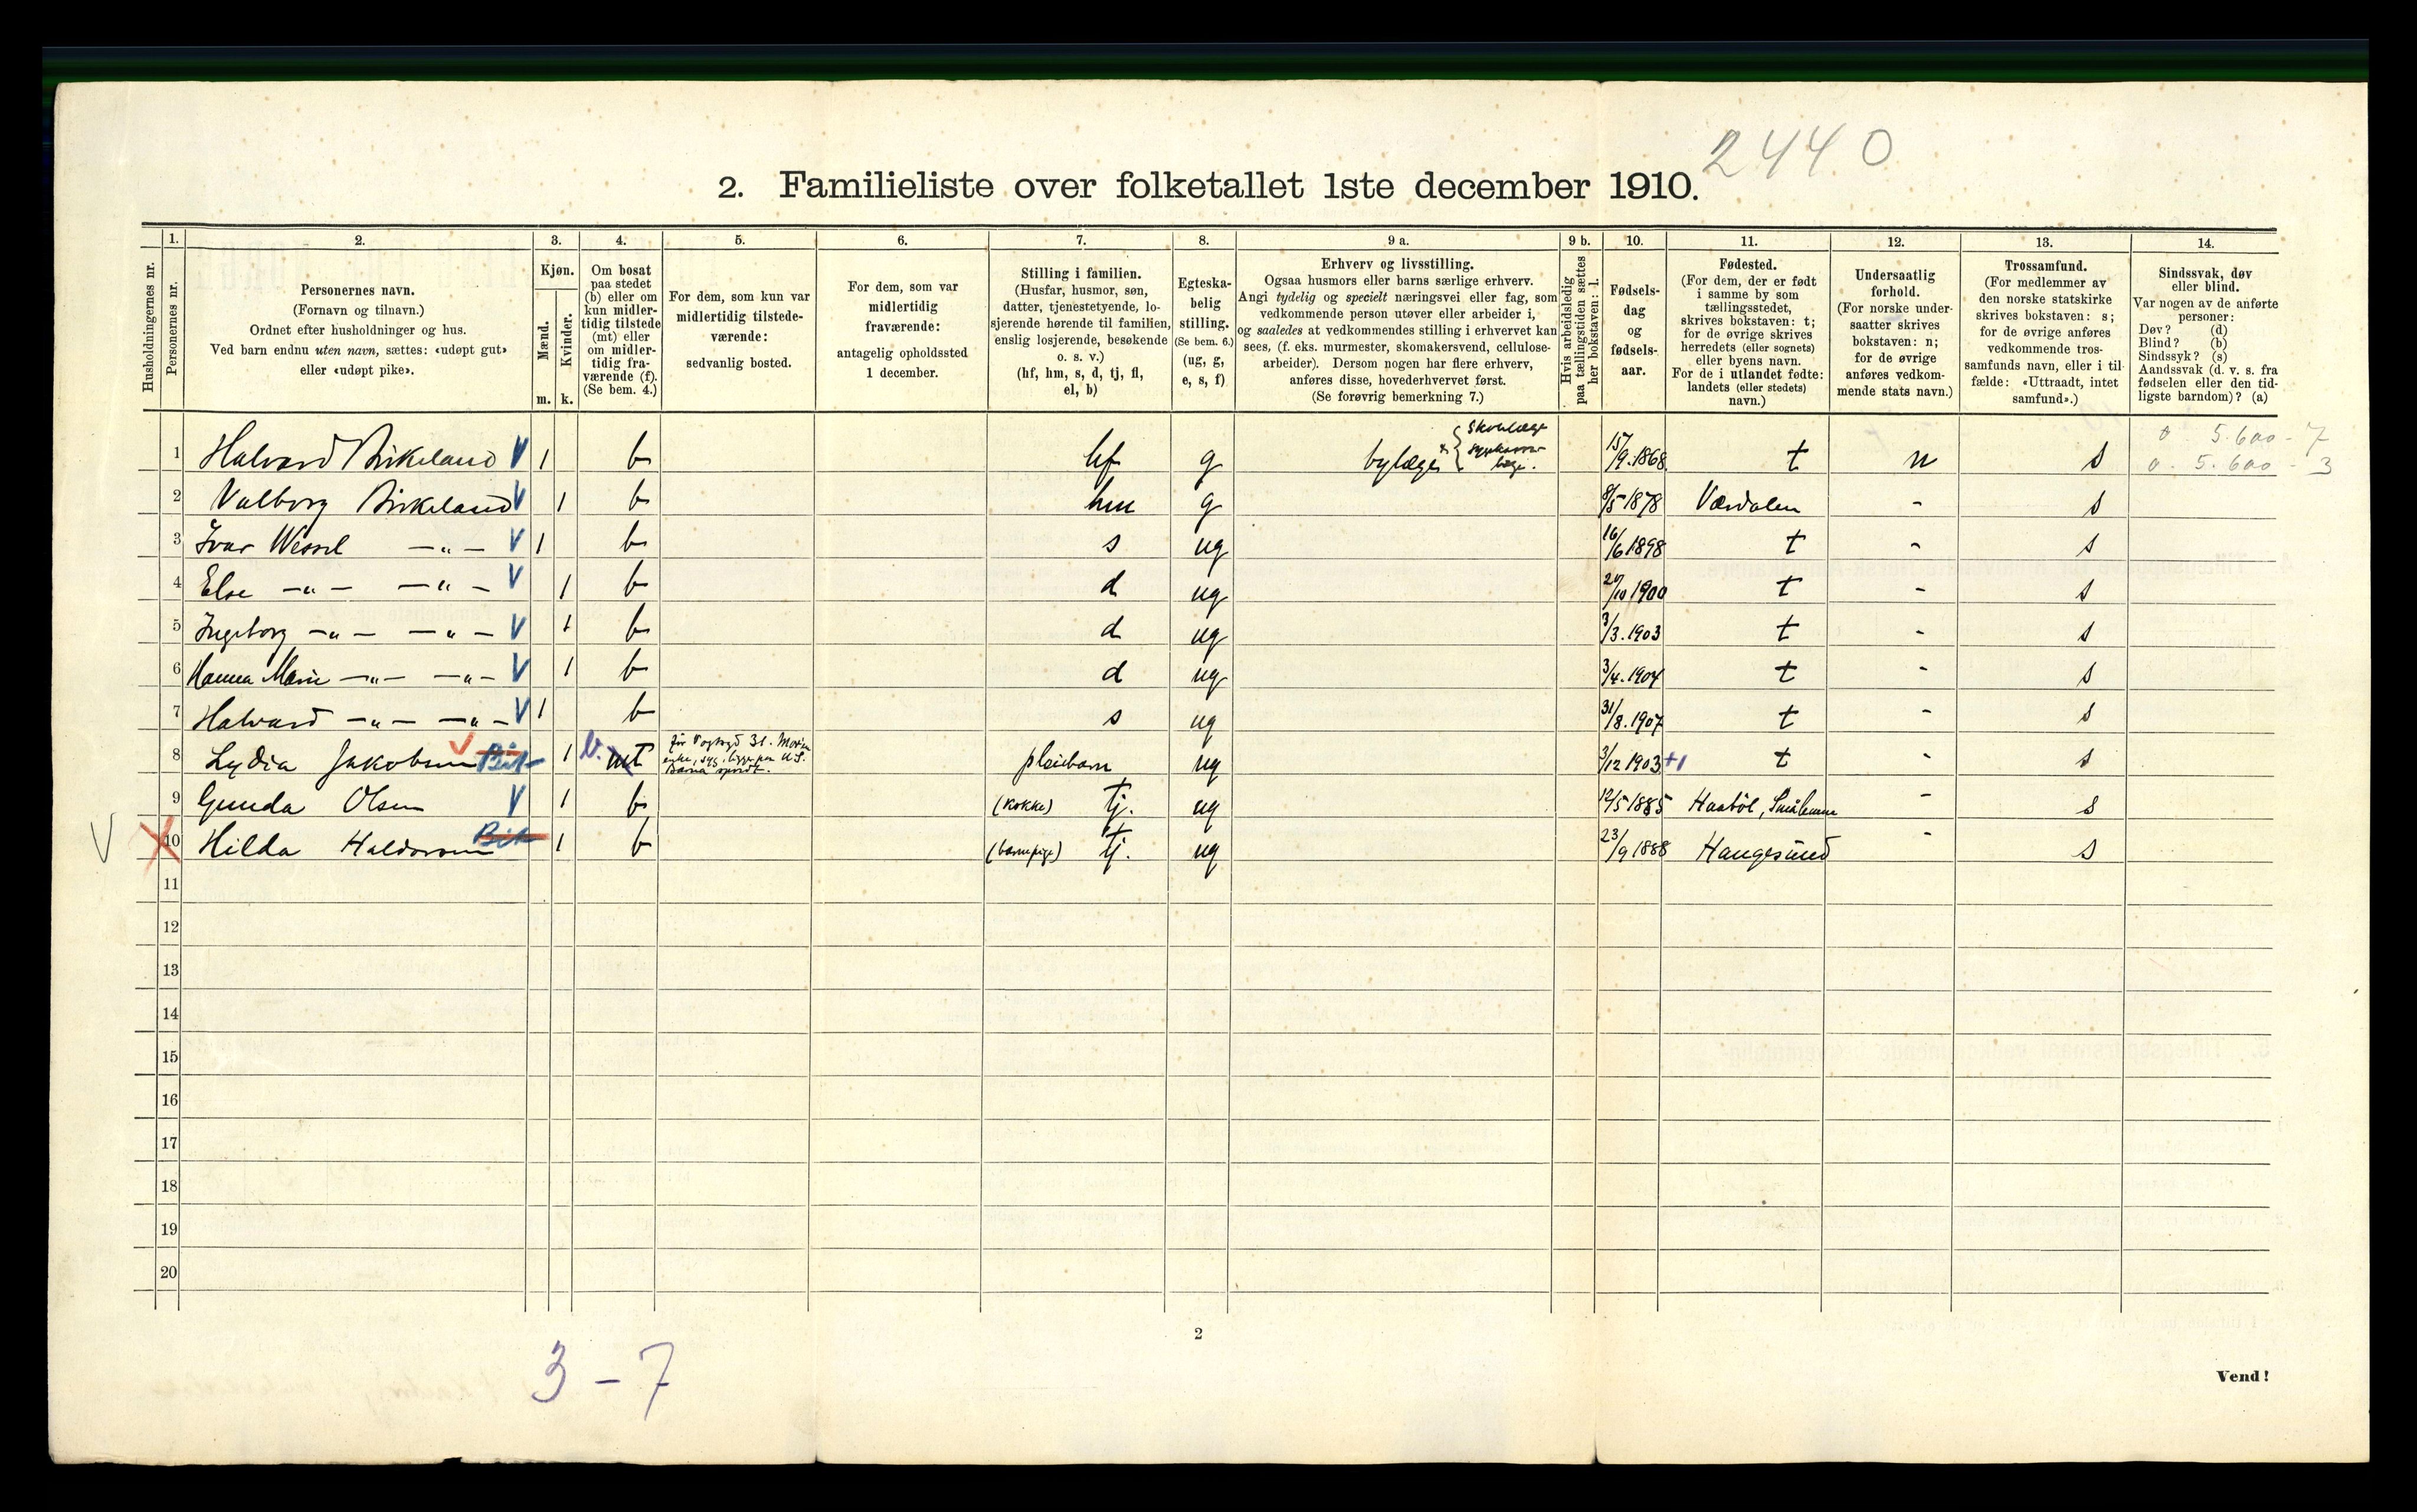 2440
2. Familieliste over folketallet 1ste december 1910.
Husholdningernes nr.
1.
Personernes nr.
2.
Personernes navn.
(Fornavn og tilnavn.)
Ordnet efter husholdninger og hus.
Ved barn endnu uten navn, sættes: «udøpt gut»
eller «udøpt pike».
3.
Kjøn.
Mænd.
Kvinder.
m. k.
4.
Om bosat
paa stedet
(b) eller om
kun midler-
tidig tilstede
(mt) eller
om midler-
tidig fra-
værende (f).
(Se bem. 4.)
5.
For dem, som kun var
midlertidig tilstede-
værende:
sedvanlig bosted.
6.
For dem, som var
midlertidig
fraværende:
antagelig opholdssted
1 december.
7.
Stilling i familien.
(Husfar, husmor, søn,
datter, tjenestetyende, lo-
sjerende hørende til familien,
enslig losjerende, besøkende
o. s. v.)
(hf, hm, s, d, tj, fl,
el, b)
8.
Egteska-
belig
stilling.
(Se bem. 6.)
(ug, g,
e, s, f)
9 a.
Erhverv og livsstilling.
Ogsaa husmors eller barns særlige erhverv.
Angi tydelig og specielt næringsvei eller fag, som
vedkommende person utøver eller arbeider i,
og saaledes at vedkommendes stilling i erhvervet kan
sees, (f. eks. murmester, skomakersvend, cellulose-
arbeider). Dersom nogen har flere erhverv,
anføres disse, hovederhvervet først.
(Se forøvrig bemerkning 7.)
9 b.
Hvis arbeidsledig
paa tællingstiden sættes
her bokstaven: l.
10.
Fødsels-
dag
og
fødsels-
aar.
11.
Fødested.
(For dem, der er født
i samme by som
tællingsstedet,
skrives bokstaven: t;
for de øvrige skrives
herredets (eller sognets)
eller byens navn.
For de i utlandet fødte:
landets (eller stedets)
navn.)
12.
Undersaatlig
forhold.
(For norske under-
saatter skrives
bokstaven: n;
for de øvrige
anføres vedkom-
mende stats navn.)
13.
Trossamfund.
(For medlemmer av
den norske statskirke
skrives bokstaven: s;
for de øvrige anføres
vedkommende tros-
samfunds navn, eller i til-
fælde: «Uttraadt, intet
samfund».)
14.
Sindssvak, døv
eller blind.
Var nogen av de anførte
personer:
Døv? (d)
Blind? (b)
Sindssyk? (s)
Aandssvak (d. v. s. fra
fødselen eller den tid-
ligste barndom)? (a)
1 Halvard Birkeland V 1 b hf g bylæge 15/9.1868 t n s 5.600 - 7
5.600 - 3
2 Valborg Birkeland V 1 b hm g 8/5 1878 Værdalen - s
3 Ivar Wessel —"— V 1 b s ug 16/6 1898 t - s
4 Else —"— —"— V 1 b d ug 27/10 1900 t - s
5 Ingeborg —"— —"— V 1 b d ug 3/3.1903 t - s
6 Hanna Marie —"— —"— V 1 b d ug 3/4.1904 t - s
7 Halvard —"— —"— V 1 b s ug 31/8.1907 t - s
8 Lydia Jakobsen V 1 b. mt pleiebarn ug 3/12 1903 +1 t - s
9 Gunda Olsen V 1 b (kokke) tj. ug 12/5 1885 Haabøl, Smålenene - s
V X 10 Hilda Haldorsen 1 b (barnepige) tj. ug 23/9 1888 Haugesund - s
11
12
13
14
15
16
17
18
19
20
2
3 - 7
Vend!